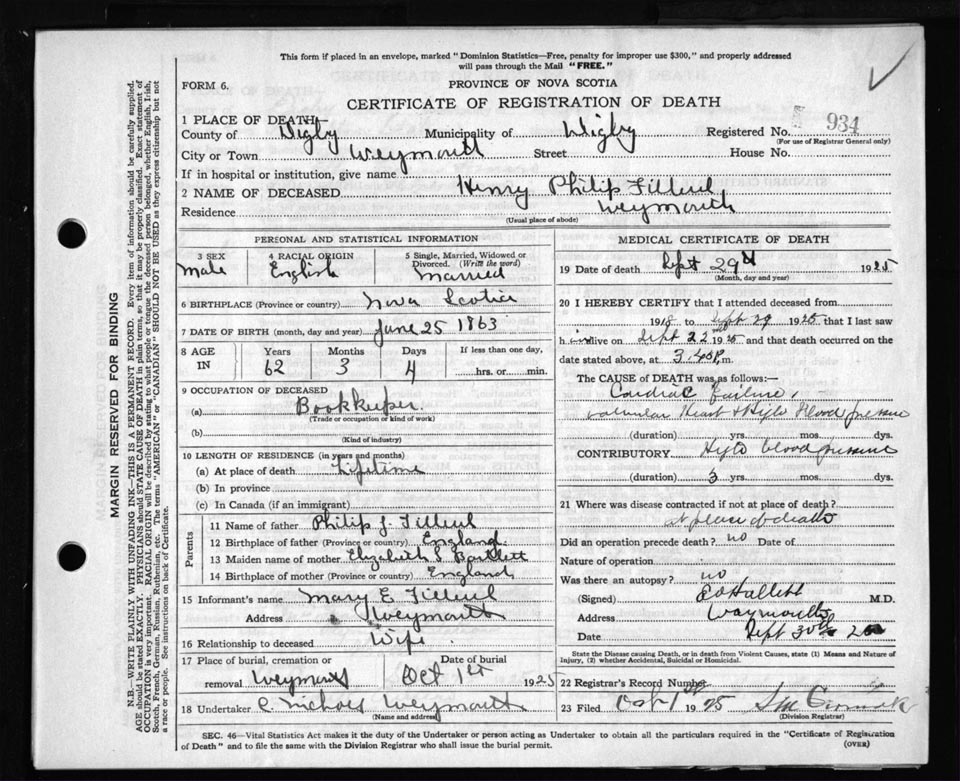 This form if placed in an envelope, marked "Dominion Statistics—Free, penalty for improper use $300," and properly addressed
will pass through the Mail "FREE."
FORM 6.
PROVINCE OF NOVA SCOTIA
CERTIFICATE OF REGISTRATION OF DEATH
1 PLACE OF DEATH—
County of Digby Municipality of Digby Registered No. 934
(For use of Registrar General only)
City or Town Weymouth Street House No.
If in hospital or institution, give name
2 NAME OF DECEASED Henry Philip Filleul
Residence Weymouth
(Usual place of abode)
PERSONAL AND STATISTICAL INFORMATION
3 SEX 4 RACIAL ORIGIN 5 Single, Married, Widowed or
Divorced. (Write the word)
Male English Married
6 BIRTHPLACE (Province or country) Nova Scotia
7 DATE OF BIRTH (month, day and year) June 25 1863
8 AGE IN Years Months Days If less than one day,
62 3 4 hrs. or min.
9 OCCUPATION OF DECEASED
(a) Bookkeeper
(Trade or occupation or kind of work)
(b)
(Kind of industry)
10 LENGTH OF RESIDENCE (in years and months)
(a) At place of death Lifetime
(b) In province
(c) In Canada (if an immigrant)
Parents
11 Name of father Philip J. Filleul
12 Birthplace of father (Province or country) England
13 Maiden name of mother Elizabeth S Bartlett
14 Birthplace of mother (Province or country) England
15 Informant's name Mary E Filleul
Address Weymouth
16 Relationship to deceased Wife
17 Place of burial, cremation or Date of burial
removal Weymouth Oct 1st 1925
18 Undertaker C Nichols Weymouth
(Name and address)
MEDICAL CERTIFICATE OF DEATH
19 Date of death Sept 29th 1925
(Month, day and year)
20 I HEREBY CERTIFY that I attended deceased from
1918 to Sept 29 1925 that I last saw
him alive on Sept 22nd 1925 and that death occurred on the
date stated above, at 3.40 P.m.
The CAUSE OF DEATH was as follows:—
Cardiac failure,
Valvular Heart & High Blood pressure
(duration) yrs. mos. dys.
CONTRIBUTORY High blood pressure
(duration) 3 yrs. mos. dys.
21 Where was disease contracted if not at place of death?
at place of death
Did an operation precede death? no Date of
Nature of operation
Was there an autopsy? no
(Signed) Hallett M.D.
Address Weymouth
Date Sept 30th
State the Disease causing Death, or in death from Violent Causes, state (1) Means and Nature of
Injury, (2) whether Accidental, Suicidal or Homicidal.
22 Registrar's Record Number 39
23 Filed Oct 1 1925
(Division Registrar)
SEC. 46—Vital Statistics Act makes it the duty of the Undertaker or person acting as Undertaker to obtain all the particulars required in the "Certificate of Registration
of Death" and to file the same with the Division Registrar who shall issue the burial permit. (OVER)
MARGIN RESERVED FOR BINDING
N.B.—WRITE PLAINLY WITH UNFADING INK—THIS IS A PERMANENT RECORD. Every item of information should be carefully supplied.
AGE should be stated EXACTLY. PHYSICIANS should STATE CAUSE OF DEATH in plain terms, so that it may be properly classified. Exact statement of
OCCUPATION is very important. RACIAL ORIGIN will be described by stating to what people or tongue the deceased person belonged, whether English, Irish,
Scotch, French, German, Russian, Ruthenian, etc. The terms "AMERICAN" or "CANADIAN" SHOULD NOT BE USED as they express citizenship but not
a race or people. See instructions on back of Certificate.